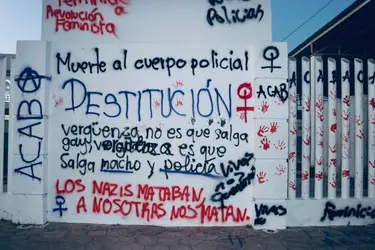 Feminicida
a
Revolución
Feminista
Policías
Muerte al cuerpo policial
DESTITUCIÓN
ACAB
ACAB
vergüenza, no es que salga
gay, vergüenza es que
Salga macho y policía
VIVAS
LOS NAZIS MATABAN,
A NOSOTRAS NOS MATAN.
VIVAS